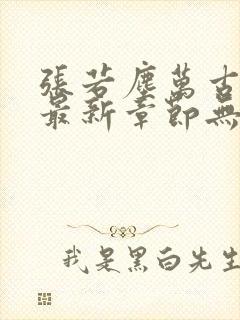 張若塵萬古
最新章節無
我是黑白先生